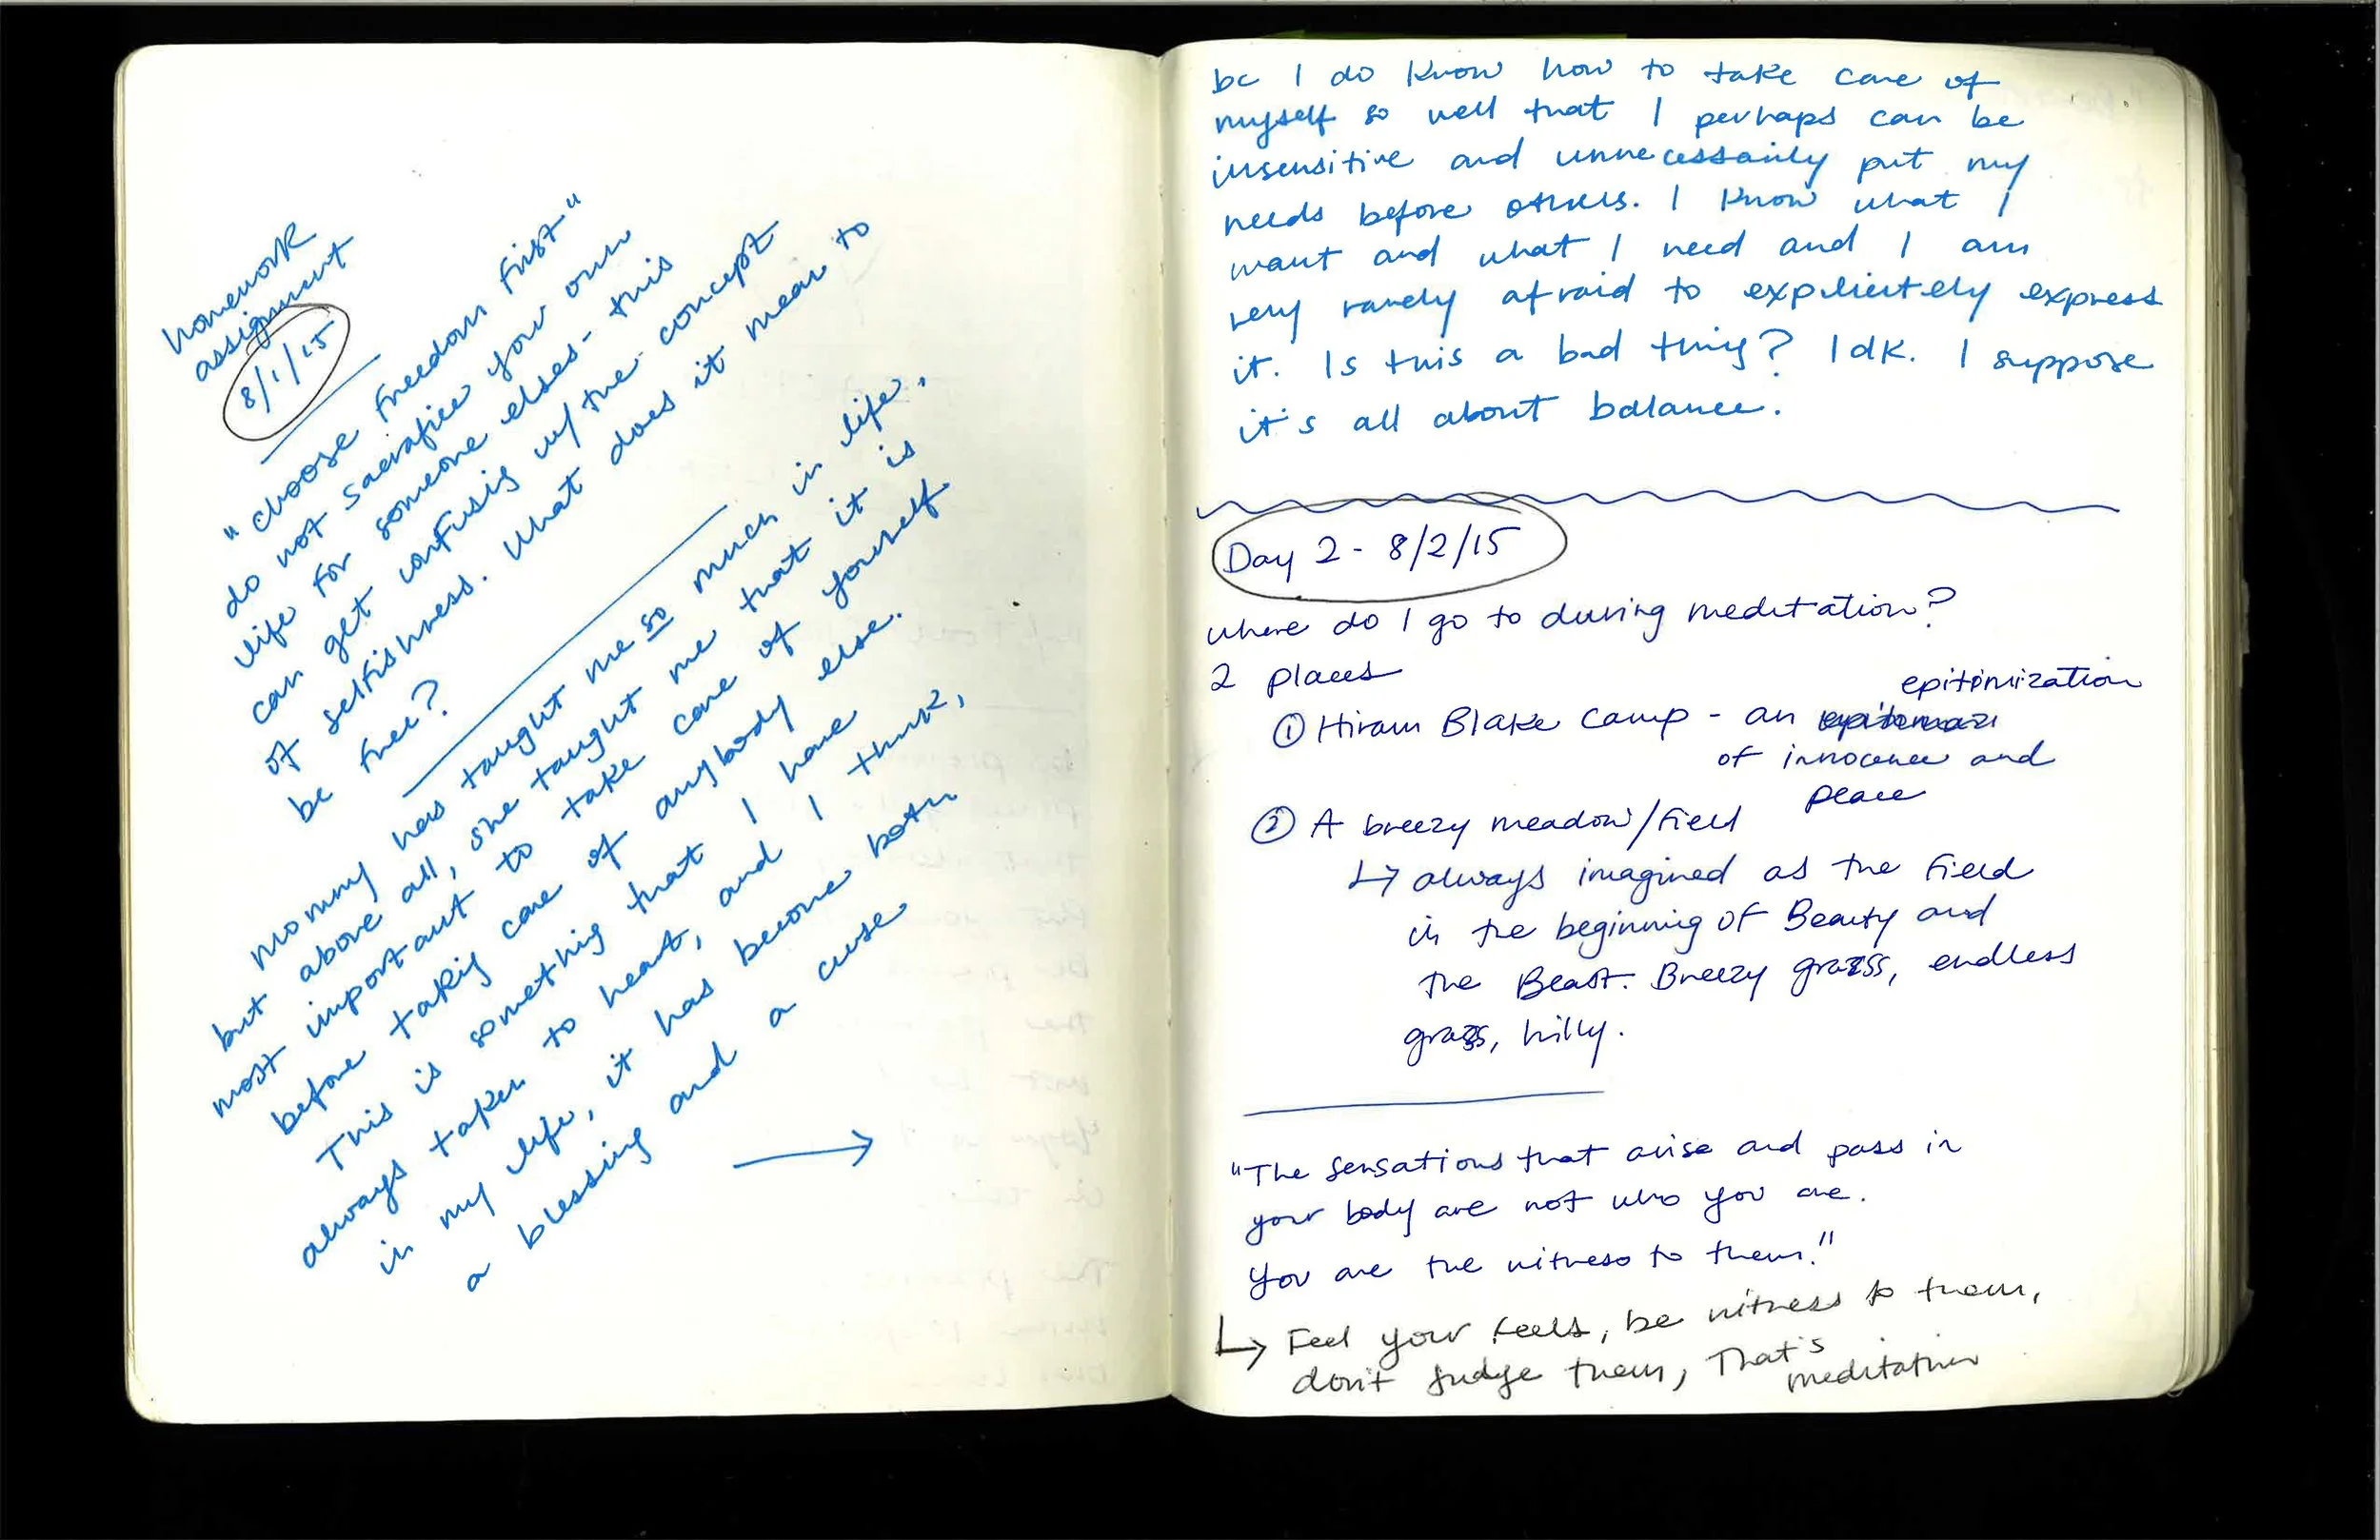 homework
assignment
8/1/15
"choose freedom first"
do not sacrafice your own
life for someone elses - this
can get confusig w/ the concept
of selfishness. What does it mean to
be free?
Mommy has taught me so much in life,
but above all, she taught me that it is
most important to take care of yourself
before takig care of anybody else.
This is something that I have
always taken to heart, and I think,
in my life, it has become both
a blessing and a cuse
→
bc I do know how to take care of
myself so well that I perhaps can be
insensitive and unnecessarily put my
needs before others. I know what I
want and what I need and I am
very rarely afraid to explicitely express
it. Is this a bad thing? Idk. I suppose
it's all about balance.
Day 2 - 8/2/15
where do I go to during meditation?
2 places
① Hiram Blake Camp - an epitimization
of innocence and
peace
② A breezy meadow/field
↳ always imagined as the field
in the beginning of Beauty and
the Beast. Breezy grass, endless
grass, hilly.
"The sensations that arise and pass in
your body are not who you are.
You are the witness to them."
↳ Feel your feels, be witness to them,
don't judge them, That's
meditation